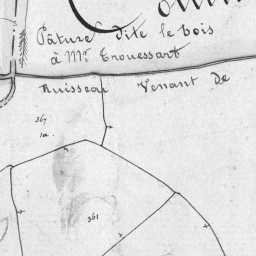 Pâture dite le bois
à Mr. Trouessart
Ruisseau Venant De
367
1a.
361